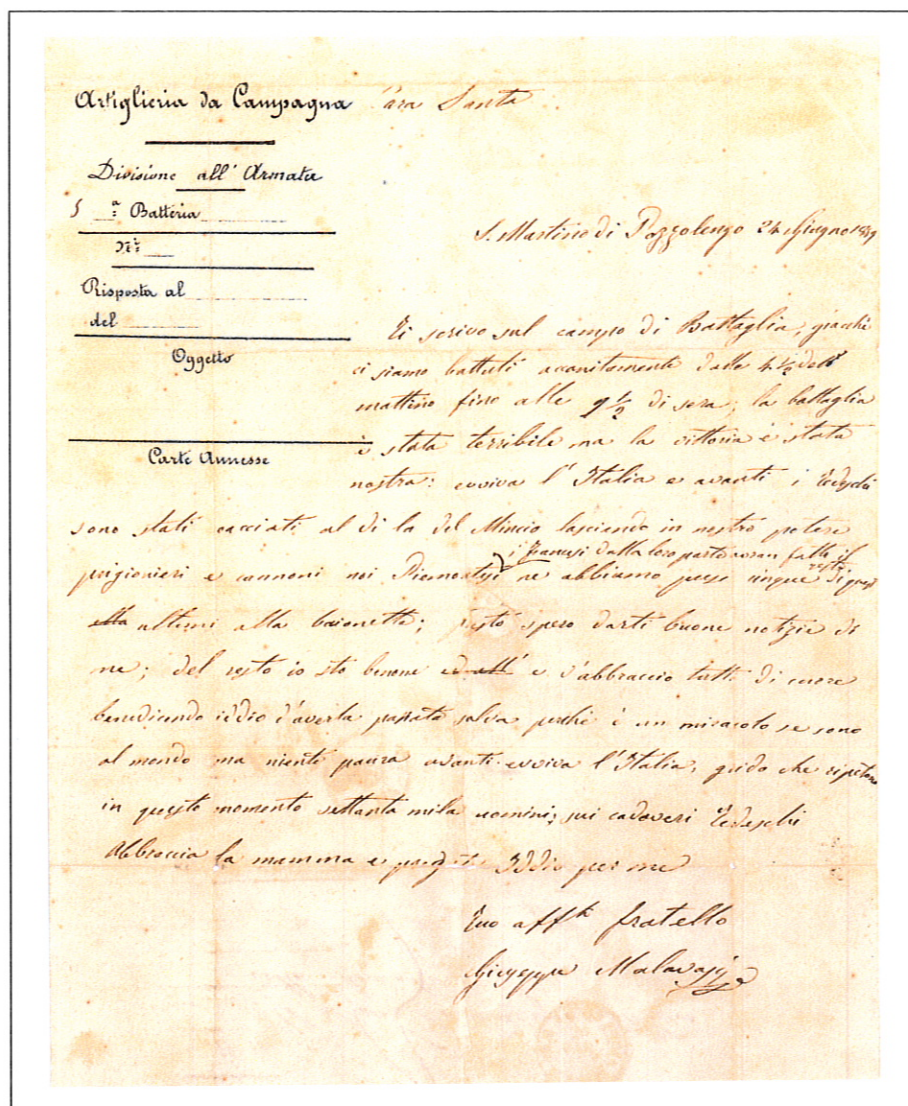 Artiglieria da Campagna
Divisione all' Armata
5 ª Batteria
N.º
Risposta al
del
Oggetto
Carte Annesse
Cara Santa
S. Martino di Pozzolengo 24 Giugno 1859
Ti scrivo sul campo di Battaglia, giacchè
ci siamo battuti accanitamente dalle 4 ½ del
mattino fino alle 9 ½ di sera; la battaglia
è stata terribile ma la vittoria è stata
nostra: evviva l'Italia e avanti i Tedeschi
sono stati cacciati al di la del Mincio lasciando in nostro potere
i Francesi dalla loro parte avran fatto il resto
prigionieri e cannoni noi Piemontesi ne abbiamo preso cinque di questi
ultimi alla baionetta; presto spero darti buone notizie di
me; del resto io sto benone e v'abbraccio tutti di cuore
benedicendo iddio d'averla passata salva perchè è un miracolo se sono
al mondo ma niente paura avanti evviva l'Italia, grido che ripetono
in questo momento settanta mila uomini, sui cadaveri Tedeschi
Abbraccia la mamma e Iddio per me
Tuo aff.º fratello
Giuseppe Malavasi